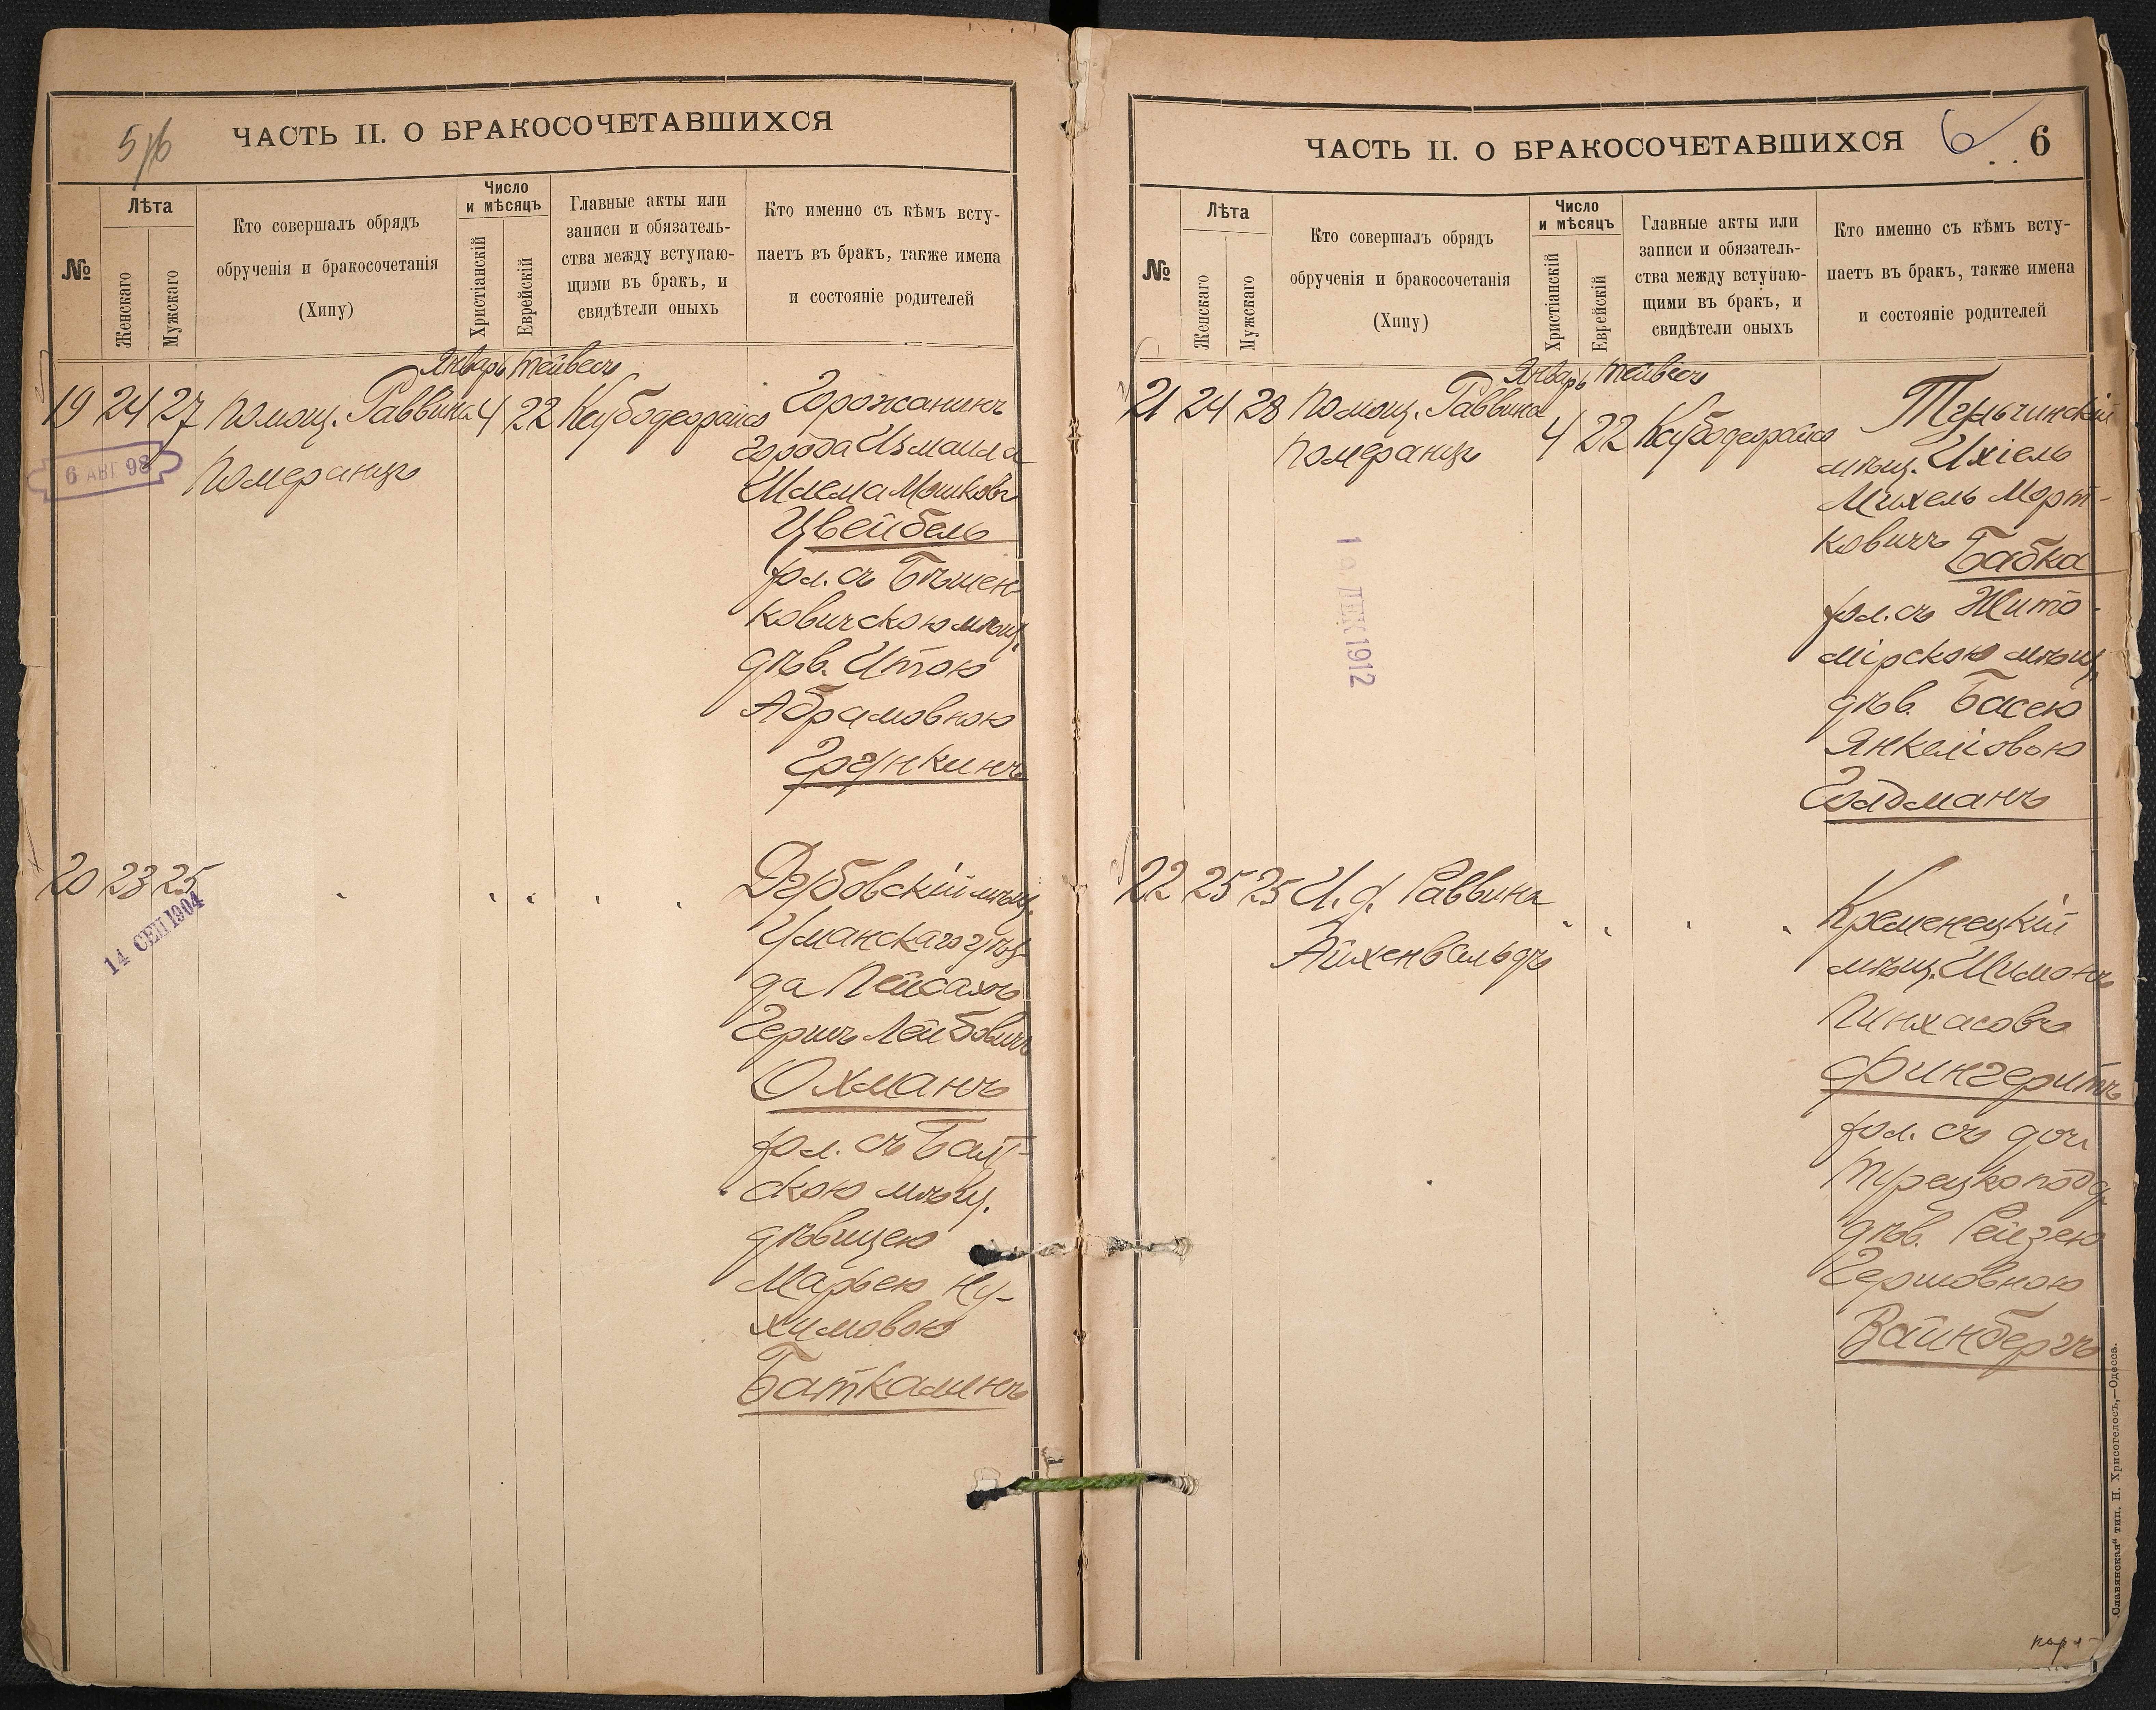 5/6
ЧАСТЬ II. О БРАКОСОЧЕТАВШИХСЯ
№
Лѣта
Женскаго
Мужскаго
Кто совершалъ обрядъ
обрученія и бракосочетанія
(Хипу)
Число
и мѣсяцъ
Христіанскій
Еврейскій
Главные акты или
записи и обязатель-
ства между вступаю-
щими въ бракъ, и
свидѣтели оныхъ
Кто именно съ кѣмъ всту-
паетъ въ бракъ, также имена
и состояніе родителей
Январь Тейвесъ
19 24 27 Помощ. Раввина 4 22
Померанцъ
6 АВГ 98
Горожанинъ
города Измаила
Шлема Мошковъ
Цвейбель
хол. съ Бѣшен-
ковичскою мѣщ.
дѣв. Итою
Абрамовною
Грункинъ
20 23 25
14 СЕН 1904
Дубовскій мѣщ.
Уманскаго уѣз-
да Пейсахъ
Гершъ Лейбовичъ
Охманъ
хол. съ Балт-
скою мѣщ.
дѣвицею
Марьею Ну-
химовою
Баткалинъ
ЧАСТЬ II. О БРАКОСОЧЕТАВШИХСЯ
6 6
№
Лѣта
Женскаго
Мужскаго
Кто совершалъ обрядъ
обрученія и бракосочетанія
(Хипу)
Число
и мѣсяцъ
Христіанскій
Еврейскій
Главные акты или
записи и обязатель-
ства между вступаю-
щими въ бракъ, и
свидѣтели оныхъ
Кто именно съ кѣмъ всту-
паетъ въ бракъ, также имена
и состояніе родителей
Январь Тейвесъ
21 24 28 Помощ. Раввина 4 22
Померанцъ
ДЕК 1912
мѣщ. Ихіель
МихельМорт-
ковичъ Бабка
хол. съ Жито-
мірскою мѣщ.
дѣв. Басею
Янкеліовою
Голдманъ
22 25 25 И. д. Раввина
Айхенвальдъ
Кременецкій
мѣщ. Шимонъ
Пинхасовъ
Фингерутъ
хол. съ доч.
Турецкоподд.
дѣв. Рейзею
Гершовною
Вайнбергъ
Славянская" тип. Н. Хрисогелосъ,—Одесса.